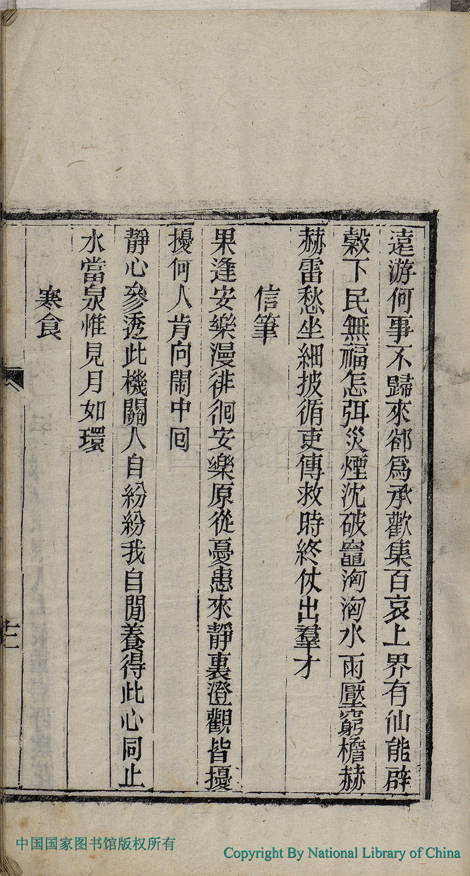 遠游何事不歸來都爲承歡集百哀上界有仙能辟
穀下民無福怎弭災煙沈破竈洶洶水雨壓窮檐赫
赫雷愁坐細披循吏傳救時終仗出羣才
信筆
果逢安樂漫徘徊安樂原從憂患來靜裏澄觀皆擾
擾何人肯向鬧中囘
靜心參透此機關人自紛紛我自閒養得此心同止
水當泉惟見月如環
寒食
中国国家图书馆版权所有
Copyright By National Library of China